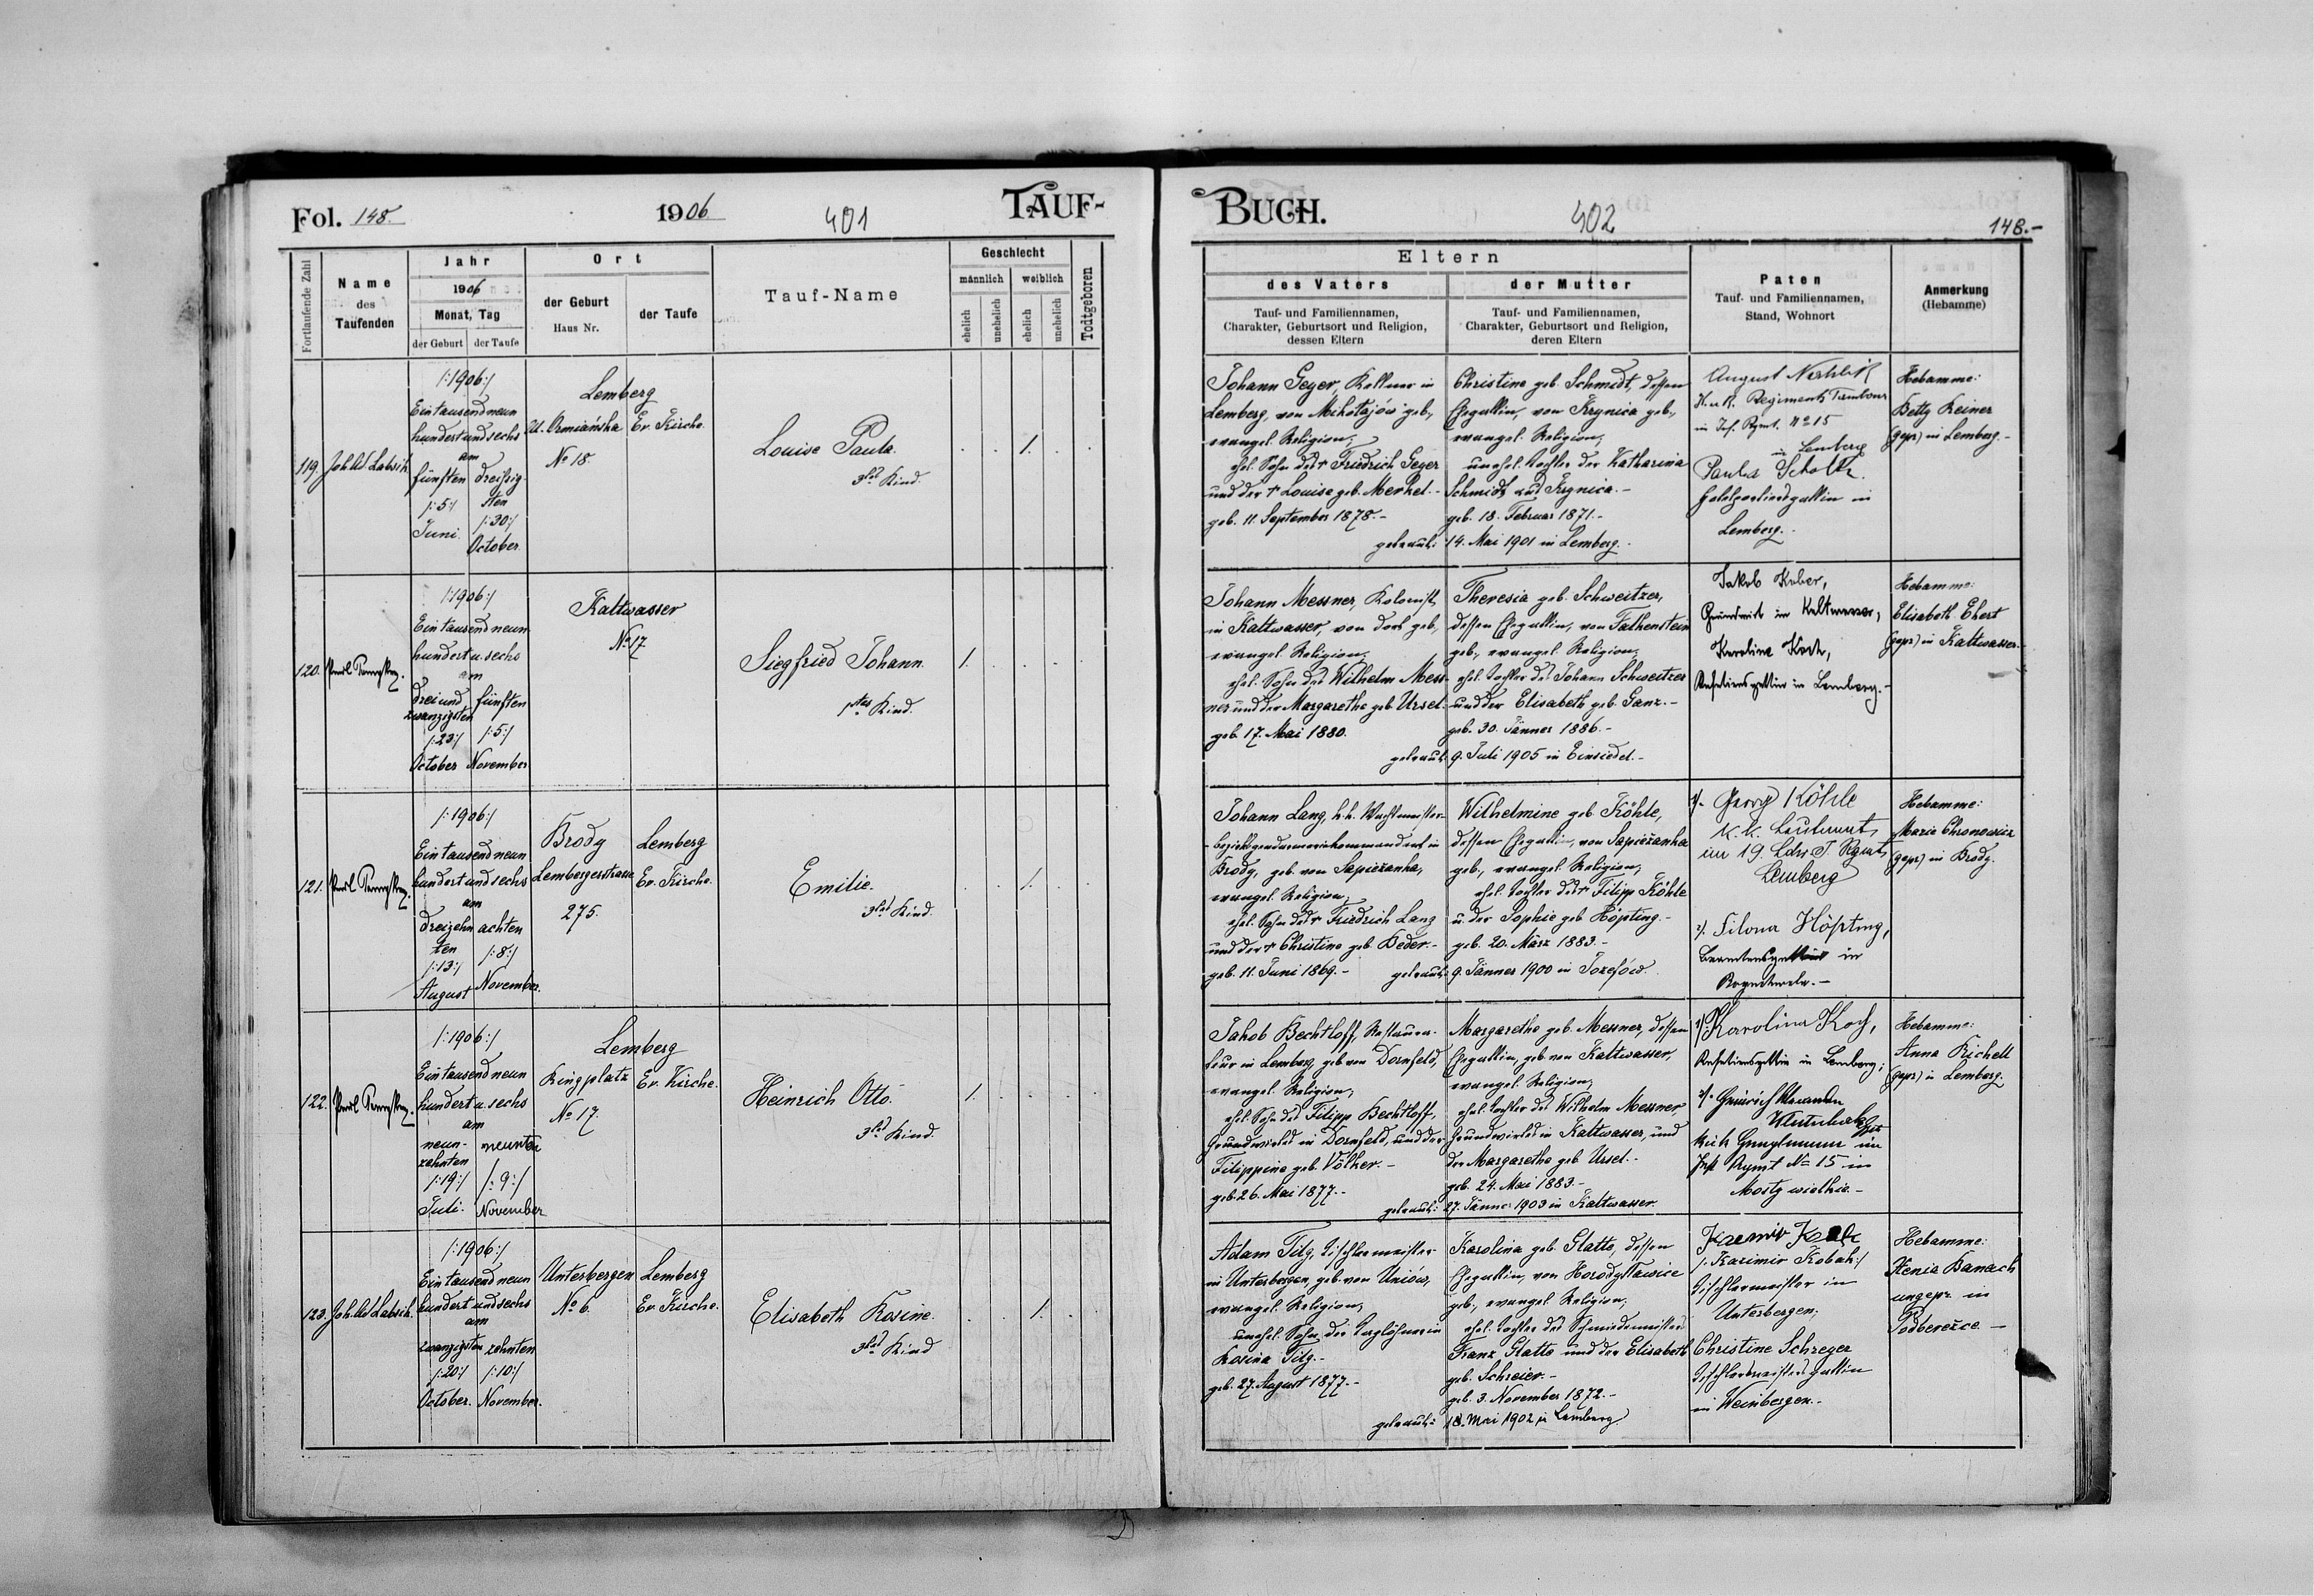 Fol. 148.
1906
401
TAUF-
Fortlaufende Zahl
Name
des
Taufenden
Jahr
1906
Monat, Tag
der Geburt
der Taufe
Ort
der Geburt
Haus Nr.
der Taufe
Tauf-Name
Geschlecht
männlich
weiblich
ehelich
unehelich
ehelich
unehelich
Todtgeboren
119.
/:1906:/
Eintausendneun
hundertundsechs
am
fünften
/:5:/
Juni.
dreißig-
sten
/:30:/
October.
Lemberg
Ul. Ormiańska
No 18.
Ev. Kirche.
Louise Paula.
3tes Kind.
1.
120.
/:1906:/
Eintausendneun-
hundert u. sechs
am
dreiund
zwanzigsten
/:23:/
October
fünften
/:5:/
November
Kaltwasser
No 17
Siegfried Johann.
1tes Kind.
1.
121.
/:1906:/
Eintausendneun
hundertundsechs
am
dreizehn
ten
/:13:/
August
achten
/:8:/
November.
Brody
Lembergerstrasse
275.
Lemberg
Ev. Kirche.
Emilie.
3tes Kind.
1.
122.
/:1906:/
Eintausendneun
hundert u. sechs
am
neun-
zehnten
/:19:/
Juli.
neunten
/:9:/
November
Lemberg
Ringplatz
No 17.
Ev. Kirche.
Heinrich Otto.
3tes Kind.
1.
123.
/:1906:/
Eintausendneun
hundertundsechs
am
zwanzigsten
/:20:/
October.
zehnten
/:10:/
November.
Unterbergen
No 6.
Lemberg
Ev. Kirche.
Elisabeth Rosine.
3tes Kind
1.
BUCH.
402
148.-
Eltern
des Vaters
Tauf- und Familiennamen,
Charakter, Geburtsort und Religion,
dessen Eltern
der Mutter
Tauf- und Familiennamen,
Charakter, Geburtsort und Religion,
deren Eltern
Paten
Tauf- und Familiennamen,
Stand, Wohnort
Anmerkung
(Hebamme)
Johann Geyer, Kellner in
Lemberg, von Mikołajów geb.,
evangel. Religion,
ehel. Sohn des † Friedrich Geyer
und der † Louise geb. Merkel.-
geb. 11. September 1878.-
getraut:
Christine geb. Schmidt, dessen
Ehegattin, von Krynica geb.,
evangel. Religion,
unehel. Tochter der Katharina
Schmidt aus Krynica.-
geb. 18. Februar 1871.-
14. Mai 1901 in Lemberg.
August
K. u. K. Regiments Tambour
in Inf. Rgmt. No 15
in Lemberg
Paula Scholtz.
in
Lemberg.-
Hebamme:
Betty Keiner
(gepr.) in Lemberg.-
Johann Messner, Kolonist
in Kaltwasser, von dort geb.,
evangel. Religion,
ehel. Sohn des Wilhelm Mess-
ner und der Margarethe geb. Ursel.
geb. 17. Mai 1880.
getraut:
Theresia geb. Schweitzer,
dessen Ehegattin, von Falkenstein
geb., evangel. Religion,
ehel. Tochter des Johann Schweitzer
und der Elisabeth geb. Ganz.-
geb. 30. Jänner 1886.-
9. Juli 1905 in Einsiedel.-
Jakob Kober,
Grundwirt in Kaltwasser,
Karolina Koch,
in Lemberg.-
Hebamme:
Elisabeth Ebert
(gepr.) in Kaltwasser.
Johann Lang, k.k. Wachtmeister
bezirksgendarmeriekommandant in
Brody, geb. von Sapieżanka,
evangel. Religion,
ehel. Sohn des † Friedrich Lang
und der † Christine geb. Beder.-
geb. 11. Juni 1869.-
getraut:
Wilhelmine geb. Köhle,
dessen Ehegattin, von Sapieżanka
geb., evangel. Religion,
ehel. Tochter des † Filipp Köhle
u. der Sophie geb. Höpting.-
geb. 20. März 1883.-
9. Jänner 1900 in Józefów.
1/. Georg Köhle
k.k. Leutnant
im 19. Ldw. I. Rgmt.
Lemberg
2/. Filona Höpting,
Beamtensgattin in
Hebamme:
Maria Chronowicz
(gepr.) in Brody.
Jakob Bechtloff, Restaura-
teur in Lemberg, geb. von Dornfeld,
evangel. Religion,
ehel. Sohn des Filipp Bechtloff,
Grundwirtes in Dornfeld, und der
Filippine geb. Völker.-
geb. 26. Mai 1877.-
getraut:
Margarethe geb. Messner, dessen
Ehegattin, geb. von Kaltwasser,
evangel. Religion,
ehel. Tochter des Wilhelm Messner
Grundwirtes in Kaltwasser, und
der Margarethe geb. Ursel.-
geb. 24. Mai 1883.-
27. Jänner 1903 in Kaltwasser.
1/. Karolina Koch,
in Lemberg;
2/. Heinrich
im
Inft. Rgmt No 15 in
Mosty wielkie.-
Hebamme:
Anna Richell
(gepr.) in Lemberg.
Adam Tilg, Tischlermeister
in Unterbergen, geb. von Uniów,
evangel. Religion,
unehel. Sohn der Taglöhnerin
Rosina Tilg.-
geb. 27. August 1877.-
getraut:
Karolina geb. Glatto, dessen
Ehegattin, von Horodysławice
geb., evangel. Religion,
ehel. Tochter des Schmiedemeisters
Franz Glatto und der Elisabeth
geb. Schreier.-
geb. 3. November 1872.-
18. Mai 1902 in Lemberg.
/: Kazimir Kobak:/
Tischlermeister in
Unterbergen;
Christine Schreyer
Tischlermeistersgattin
in Weinbergen.-
Hebamme:
Xenia Banach
ungepr. in
Podbereżce.-